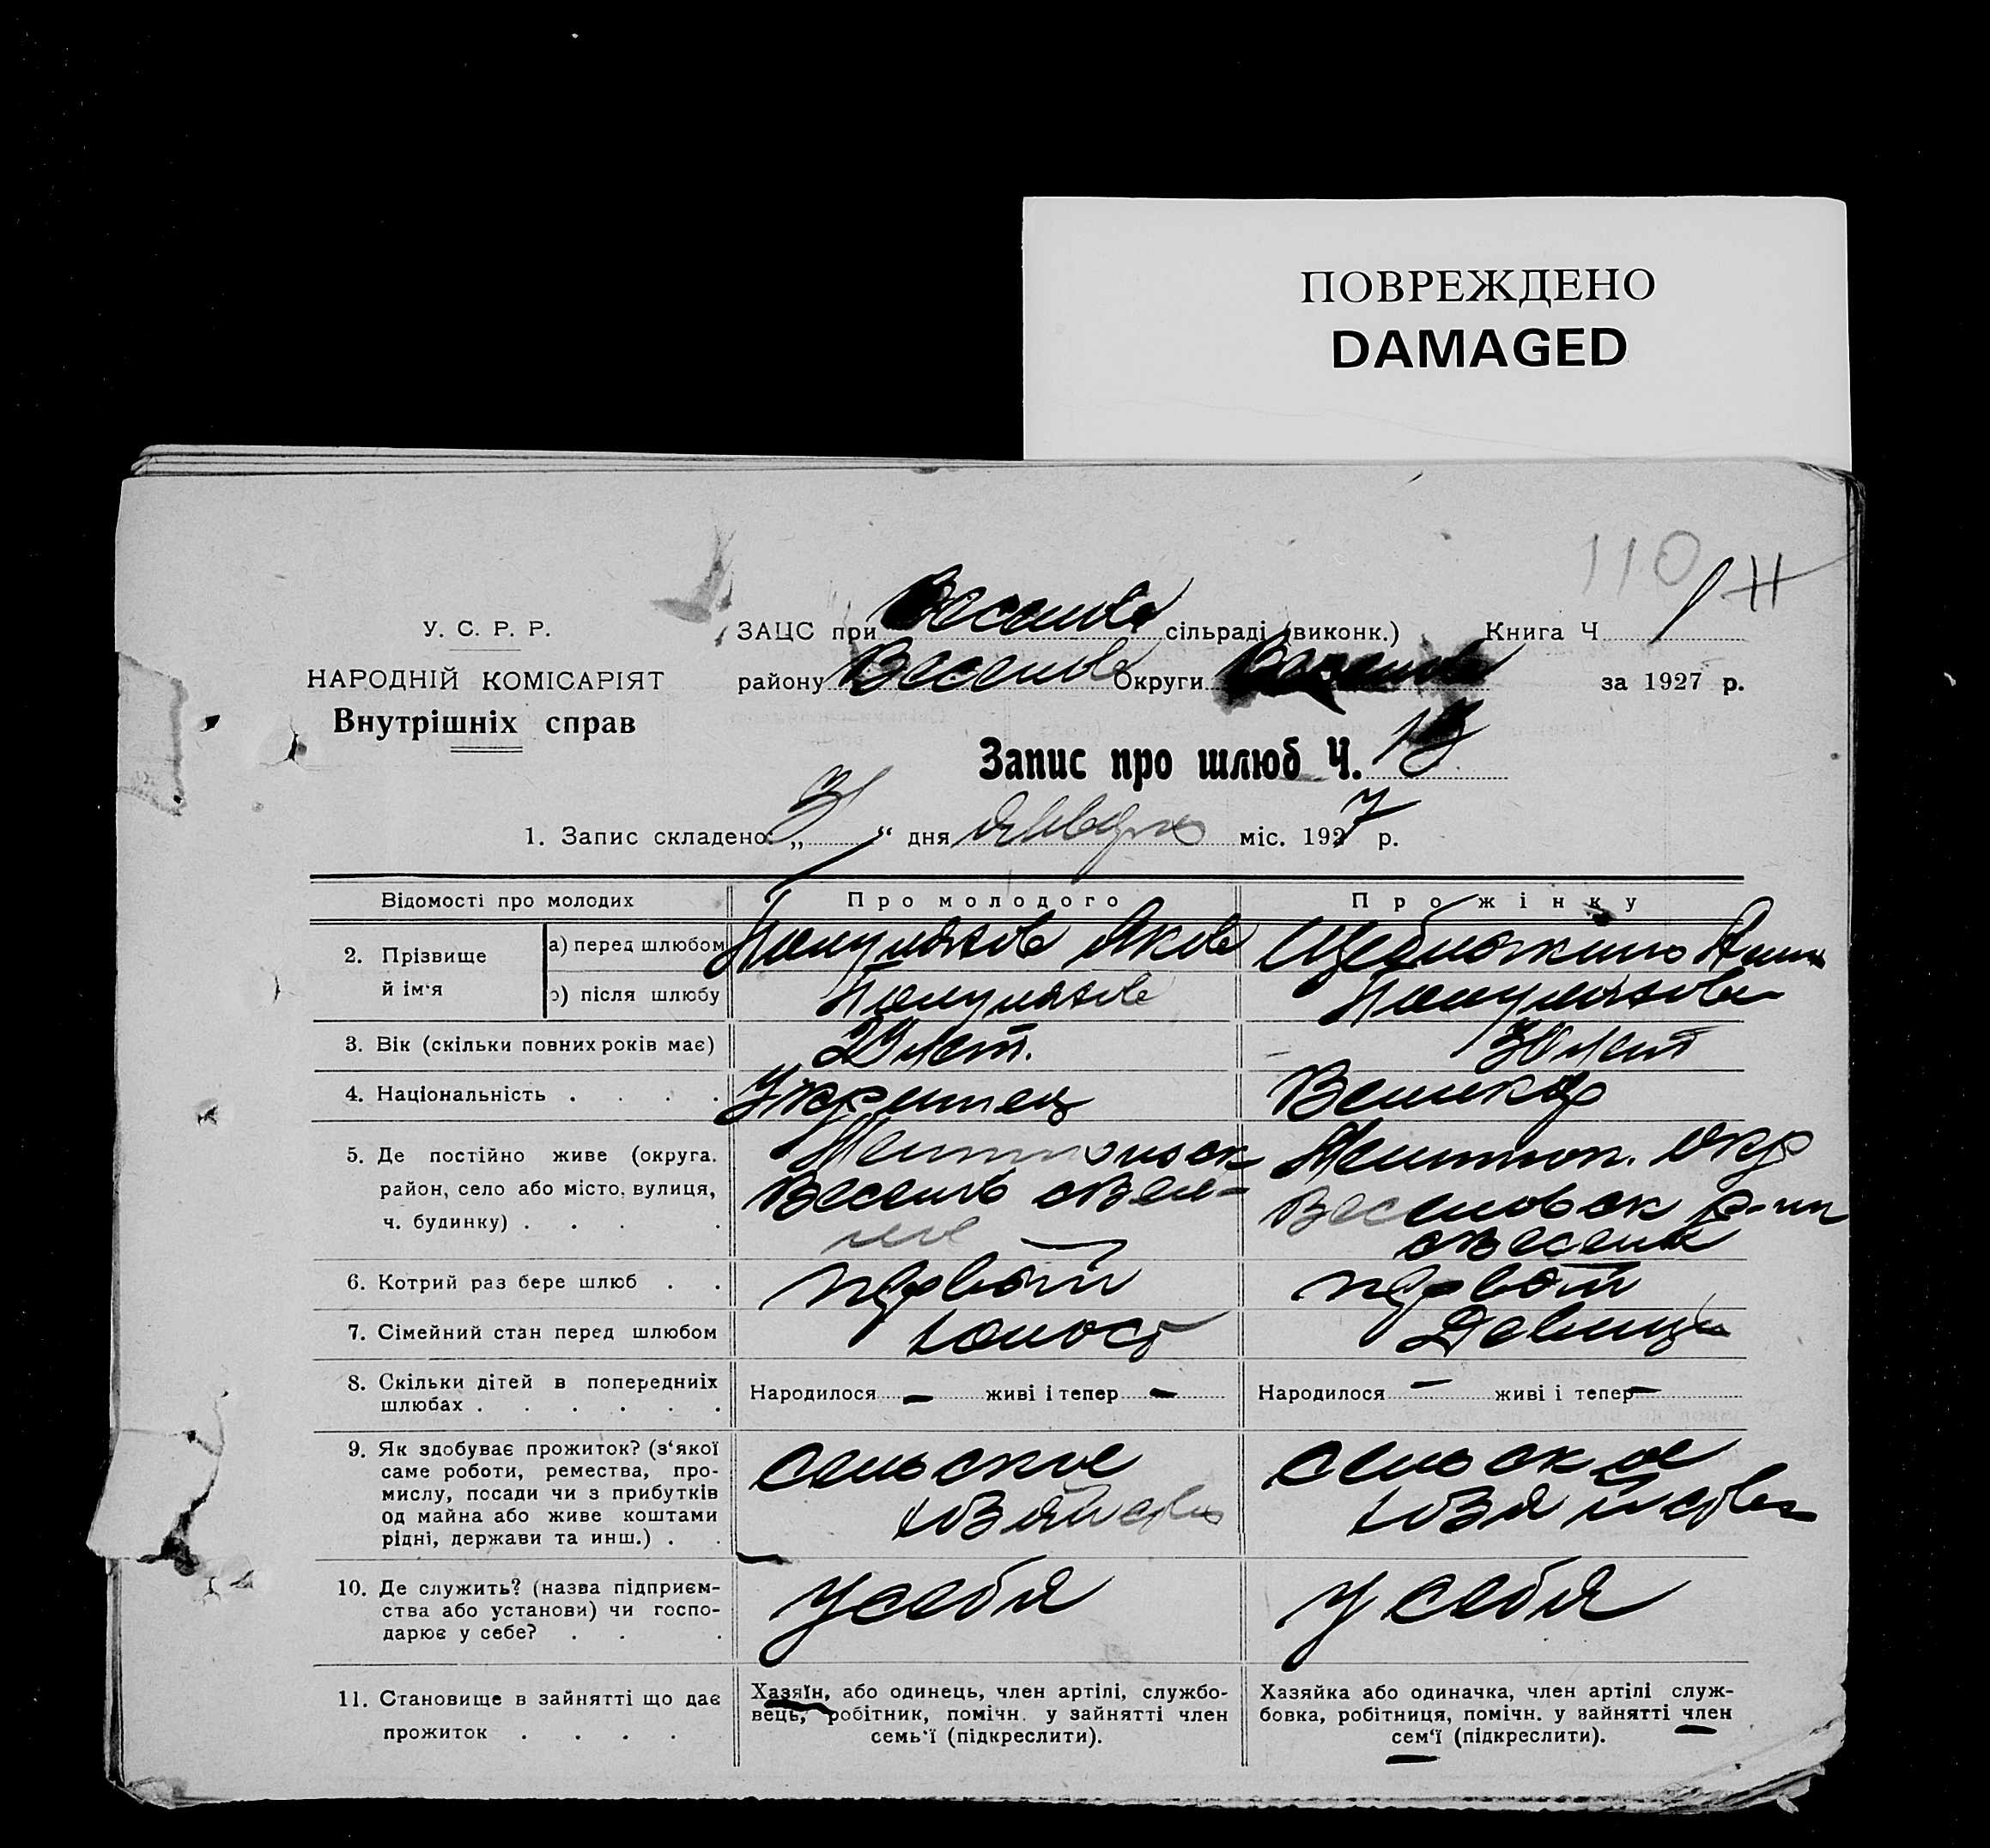 ПОВРЕЖДЕНО
DAMAGED
110
У. С. Р. Р.
НАРОДНІЙ КОМІСАРІЯТ
Внутрішніх справ
ЗАЦС при сільраді (виконк.) Книга Ч 1
району Весело Округи за 1927 р.
Запис про шлюб Ч. 13
1. Запис складено: „ 31 “ дня Января міс. 1927 р.
Відомості про молодих Про молодого Про жінку
2. Прізвище й ім'я
а) перед шлюбом Яков Анна
б) після шлюбу
3. Вік (скільки повних років має) лет. 30 лет
4. Національність . . . . Украинец Великор
5. Де постійно живе (округа, Мелитоп. Окр
район, село або місто, вулиця, Весело Веселовск р-на
ч. будинку) . . . .
6. Котрий раз бере шлюб . . первый первый
7. Сімейний стан перед шлюбом холост Девица
8. Скільки дітей в попередниіх шлюбах . . . . . . Народилося - живі і тепер - Народилося - живі і тепер -
9. Як здобуває прожиток? (з'якої
саме роботи, ремества, про-
мислу, посади чи з прибутків
од майна або живе коштами
рідні, держави та инш.) . .
сельское
хозяйство
сельское
хозяйство
10. Де служить? (назва підприєм-
ства або установи) чи госпо-
дарює у себе? . . .
у себя у себя
11. Становище в зайнятті що дає
прожиток . . . .
Хазяїн, або одинець, член артілі, службо-
вець, робітник, помічн. у зайнятті член
семь'ї (підкреслити).
Хазяйка або одиначка, член артілі служ-
бовка, робітниця, помічн. у зайнятті член
сем'ї (підкреслити).